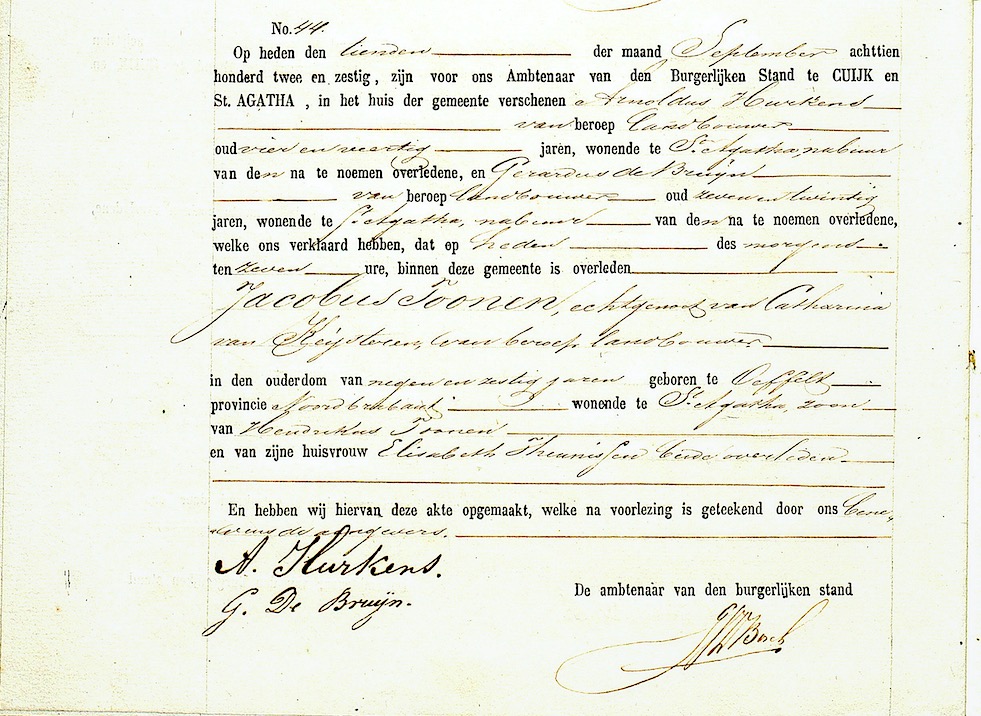 No. 44.
Op heden den tienden der maand September achttien
honderd twee en zestig, zijn voor ons Ambtenaar van den Burgerlijken Stand te CUIJK en
St. AGATHA, in het huis der gemeente verschenen Arnoldus Hurkens
van beroep landbouwer
oud vier en veertig jaren, wonende te St. Agatha, nabuur
van den na te noemen overledene, en Gerardus de Bruijn
van beroep landbouwer oud zeven en twintig
jaren, wonende te St. Agatha, nabuur van den na te noemen overledene,
welke ons verklaard hebben, dat op heden des morgens
ten zeven ure, binnen deze gemeente is overleden
Jacobus Toonen, echtgenoot van Catharina
van, van beroep landbouwer
in den ouderdom van negen en zestig jaren geboren te Oeffelt
provincie Noordbrabant wonende te St. Agatha, zoon
van Hendrikus Toonen
en van zijne huisvrouw Elisabeth Theunissen beide overleden
En hebben wij hiervan deze akte opgemaakt, welke na voorlezing is geteekend door ons bene-
vens de aangevers.
A. Hurkens.
G. De Bruijn.
De ambtenaar van den burgerlijken stand